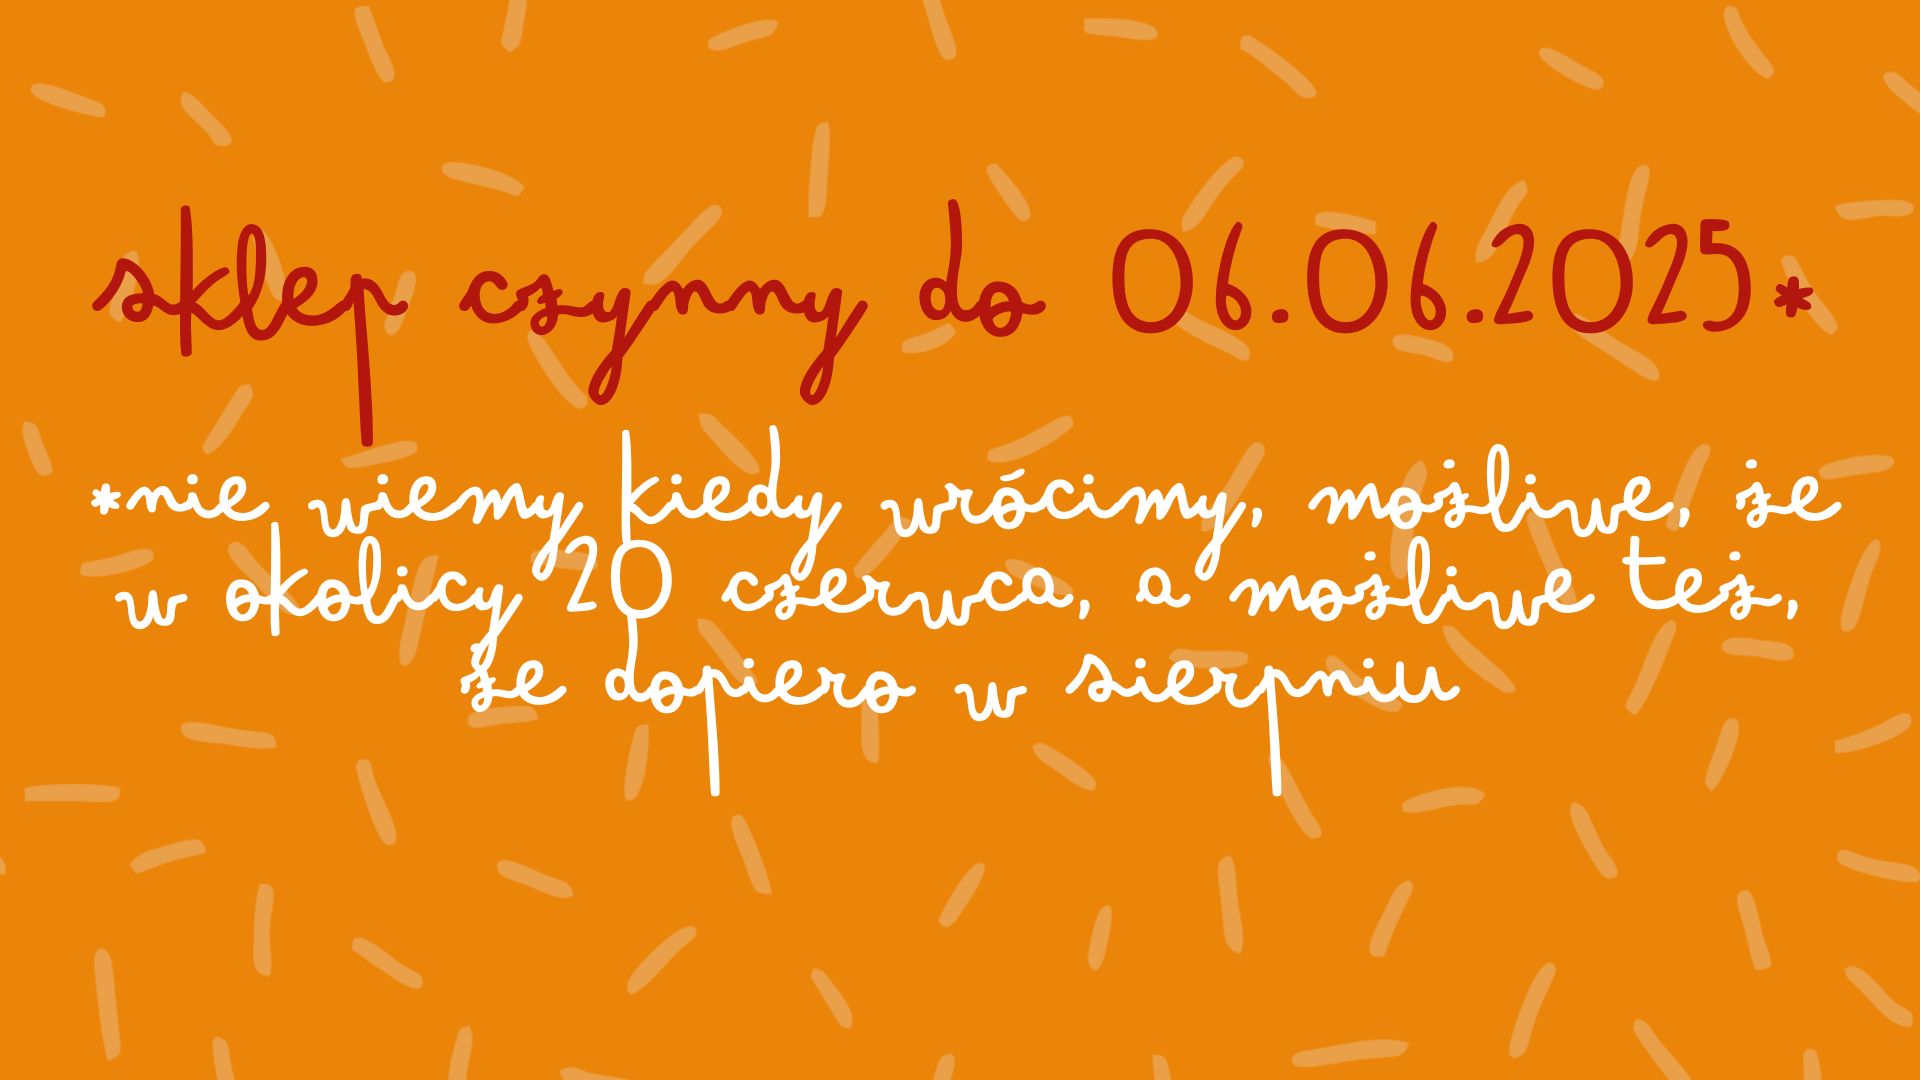 sklep czynny do 06.06.2025*
*nie wiemy kiedy wrócimy, możliwe, że
w okolicy 20 czerwca, a możliwe też,
że dopiero w sierpniu